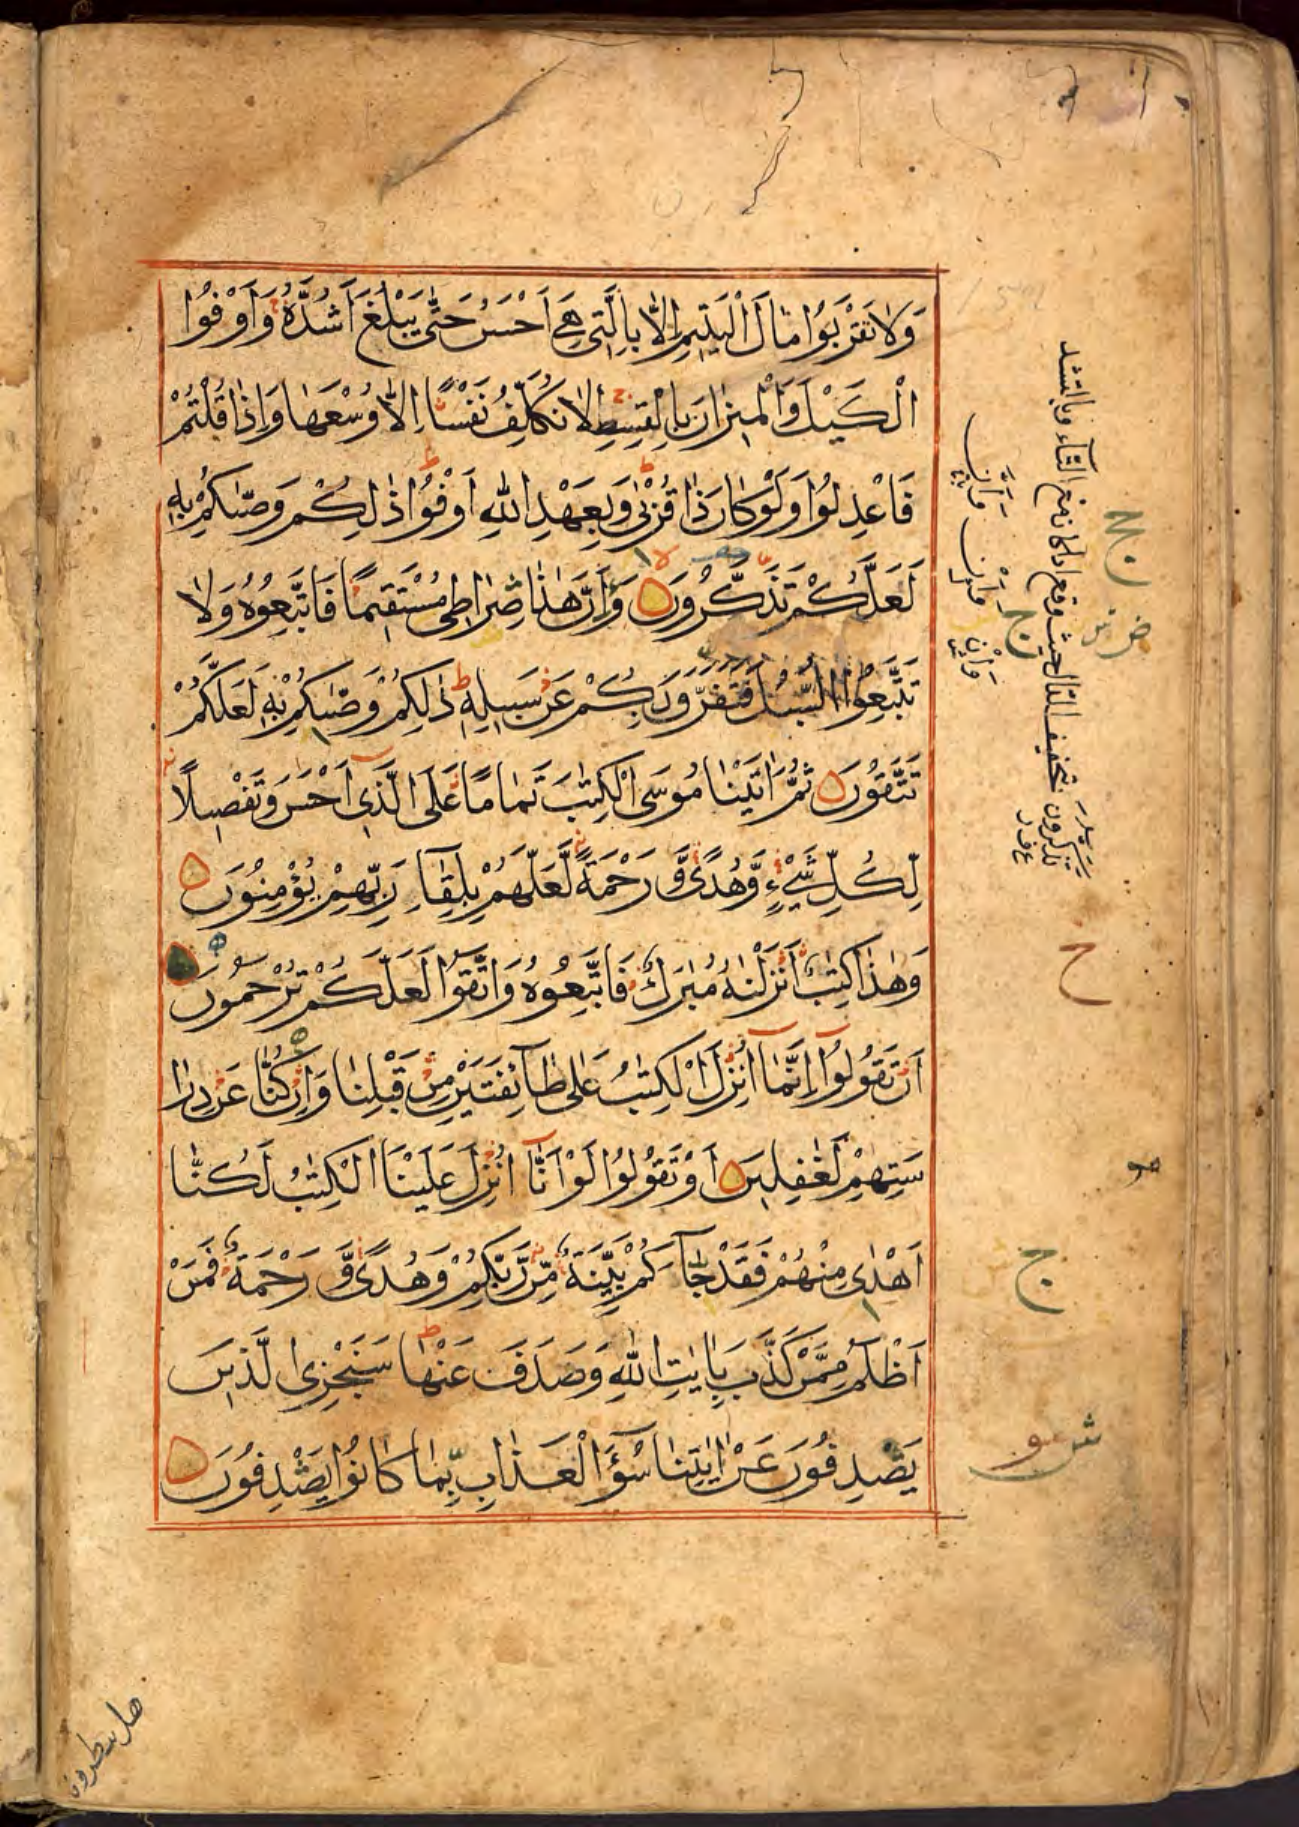 وَلَا تَقْرَبُوا مَالَ الْيَتِيمِ اِلَّا بِالَّتِي هِيَ اَحْسَنُ حَتّٰى يَبْلُغَ اَشُدَّهٗ وَاَوْفُوا
الْكَيْلَ وَالْمِيزَانَ بِالْقِسْطِ لَا نُكَلِّفُ نَفْسًا اِلَّا وُسْعَهَا وَاِذَا قُلْتُمْ
فَاعْدِلُوا وَلَوْ كَانَ ذَا قُرْبٰى وَبِعَهْدِ اللّٰهِ اَوْفُوا ذٰلِكُمْ وَصّٰىكُمْ بِهٖ
لَعَلَّكُمْ تَذَكَّرُونَ وَاَنَّ هٰذَا صِرَاطِي مُسْتَقِيمًا فَاتَّبِعُوهُ وَلَا
تَتَّبِعُوا السُّبُلَ فَتَفَرَّقَ بِكُمْ عَنْ سَبِيلِهٖ ذٰلِكُمْ وَصّٰىكُمْ بِهٖ لَعَلَّكُمْ
تَتَّقُونَ ثُمَّ اٰتَيْنَا مُوسَى الْكِتٰبَ تَمَامًا عَلَى الَّذِي اَحْسَنَ وَتَفْصِيلًا
لِّكُلِّ شَيْءٍ وَّهُدًى وَّرَحْمَةً لَّعَلَّهُمْ بِلِقَآءِ رَبِّهِمْ يُؤْمِنُونَ
وَهٰذَا كِتٰبٌ اَنْزَلْنٰهُ مُبٰرَكٌ فَاتَّبِعُوهُ وَاتَّقُوا لَعَلَّكُمْ تُرْحَمُونَ
اَنْ تَقُولُوٓا اِنَّمَآ اُنْزِلَ الْكِتٰبُ عَلٰى طَآئِفَتَيْنِ مِنْ قَبْلِنَا وَاِنْ كُنَّا عَنْ دِرَا
سَتِهِمْ لَغٰفِلِينَ اَوْ تَقُولُوا لَوْ اَنَّآ اُنْزِلَ عَلَيْنَا الْكِتٰبُ لَكُنَّا
اَهْدٰى مِنْهُمْ فَقَدْ جَآءَكُمْ بَيِّنَةٌ مِّنْ رَّبِّكُمْ وَهُدًى وَّرَحْمَةٌ فَمَنْ
اَظْلَمُ مِمَّنْ كَذَّبَ بِاٰيٰتِ اللّٰهِ وَصَدَفَ عَنْهَا سَنَجْزِي الَّذِينَ
يَصْدِفُونَ عَنْ اٰيٰتِنَا سُوٓءَ الْعَذَابِ بِمَا كَانُوا يَصْدِفُونَ
ج
ح
ج
هل ينظرون